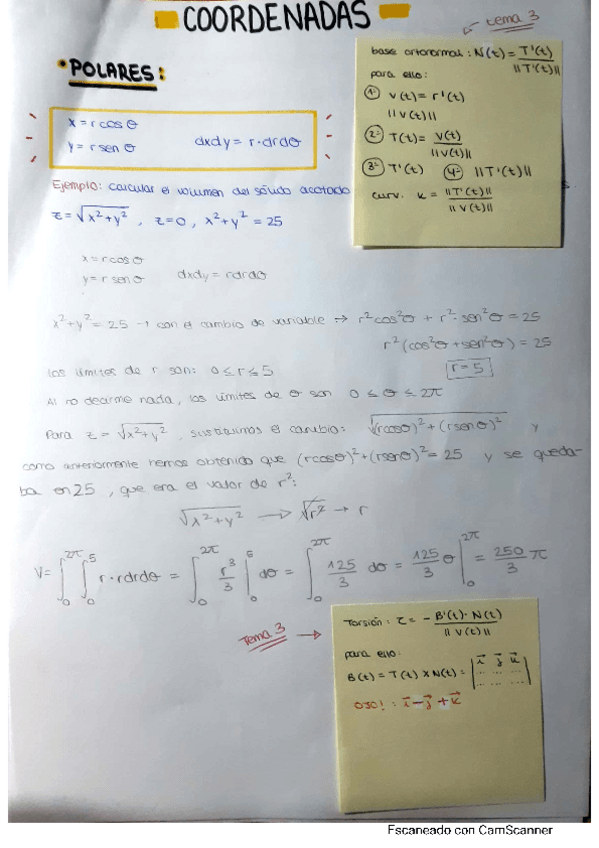 COORDENADAS
tema 3
• POLARES:
x = r cos θ
y = r sen θ
dxdy = r·drdθ
base ortonormal: N(t) = T'(t) / ||T'(t)||
para ello:
1º v(t) = r'(t)
||v(t)||
2º T(t) = v(t) / ||v(t)||
3º T'(t) 4º ||T'(t)||
curv. k = ||T'(t)|| / ||v(t)||
Ejemplo: calcular el volumen del sólido acotado
z = √x²+y² , z=0 , x²+y² = 25
x = r cos θ
y = r sen θ dxdy = rdrdθ
x²+y² = 25 → con el cambio de variable → r²cos²θ + r²·sen²θ = 25
r²(cos²θ + sen²θ) = 25
r = 5
Los límites de r son: 0 ≤ r ≤ 5
Al no decirme nada, los límites de θ son 0 ≤ θ ≤ 2π
Para z = √x²+y² , sustituimos el cambio: √(rcosθ)²+(rsenθ)² y
como anteriormente hemos obtenido que (rcosθ)²+(rsenθ)² = 25 y se queda-
ba en 25 , que era el valor de r²:
√x²+y² → √r² → r
V = ∫₀^2π ∫₀^5 r·rdrdθ = ∫₀^2π r³/3 |₀^5 dθ = ∫₀^2π 125/3 dθ = 125/3 θ |₀^2π = 250/3 π
Tema 3 →
Torsión: τ = - B'(t)·N(t) / ||v(t)||
para ello:
B(t) = T(t) x N(t) = | i j k |
... ... ...
... ... ...
OJO! : i - j + k
Escaneado con CamScanner